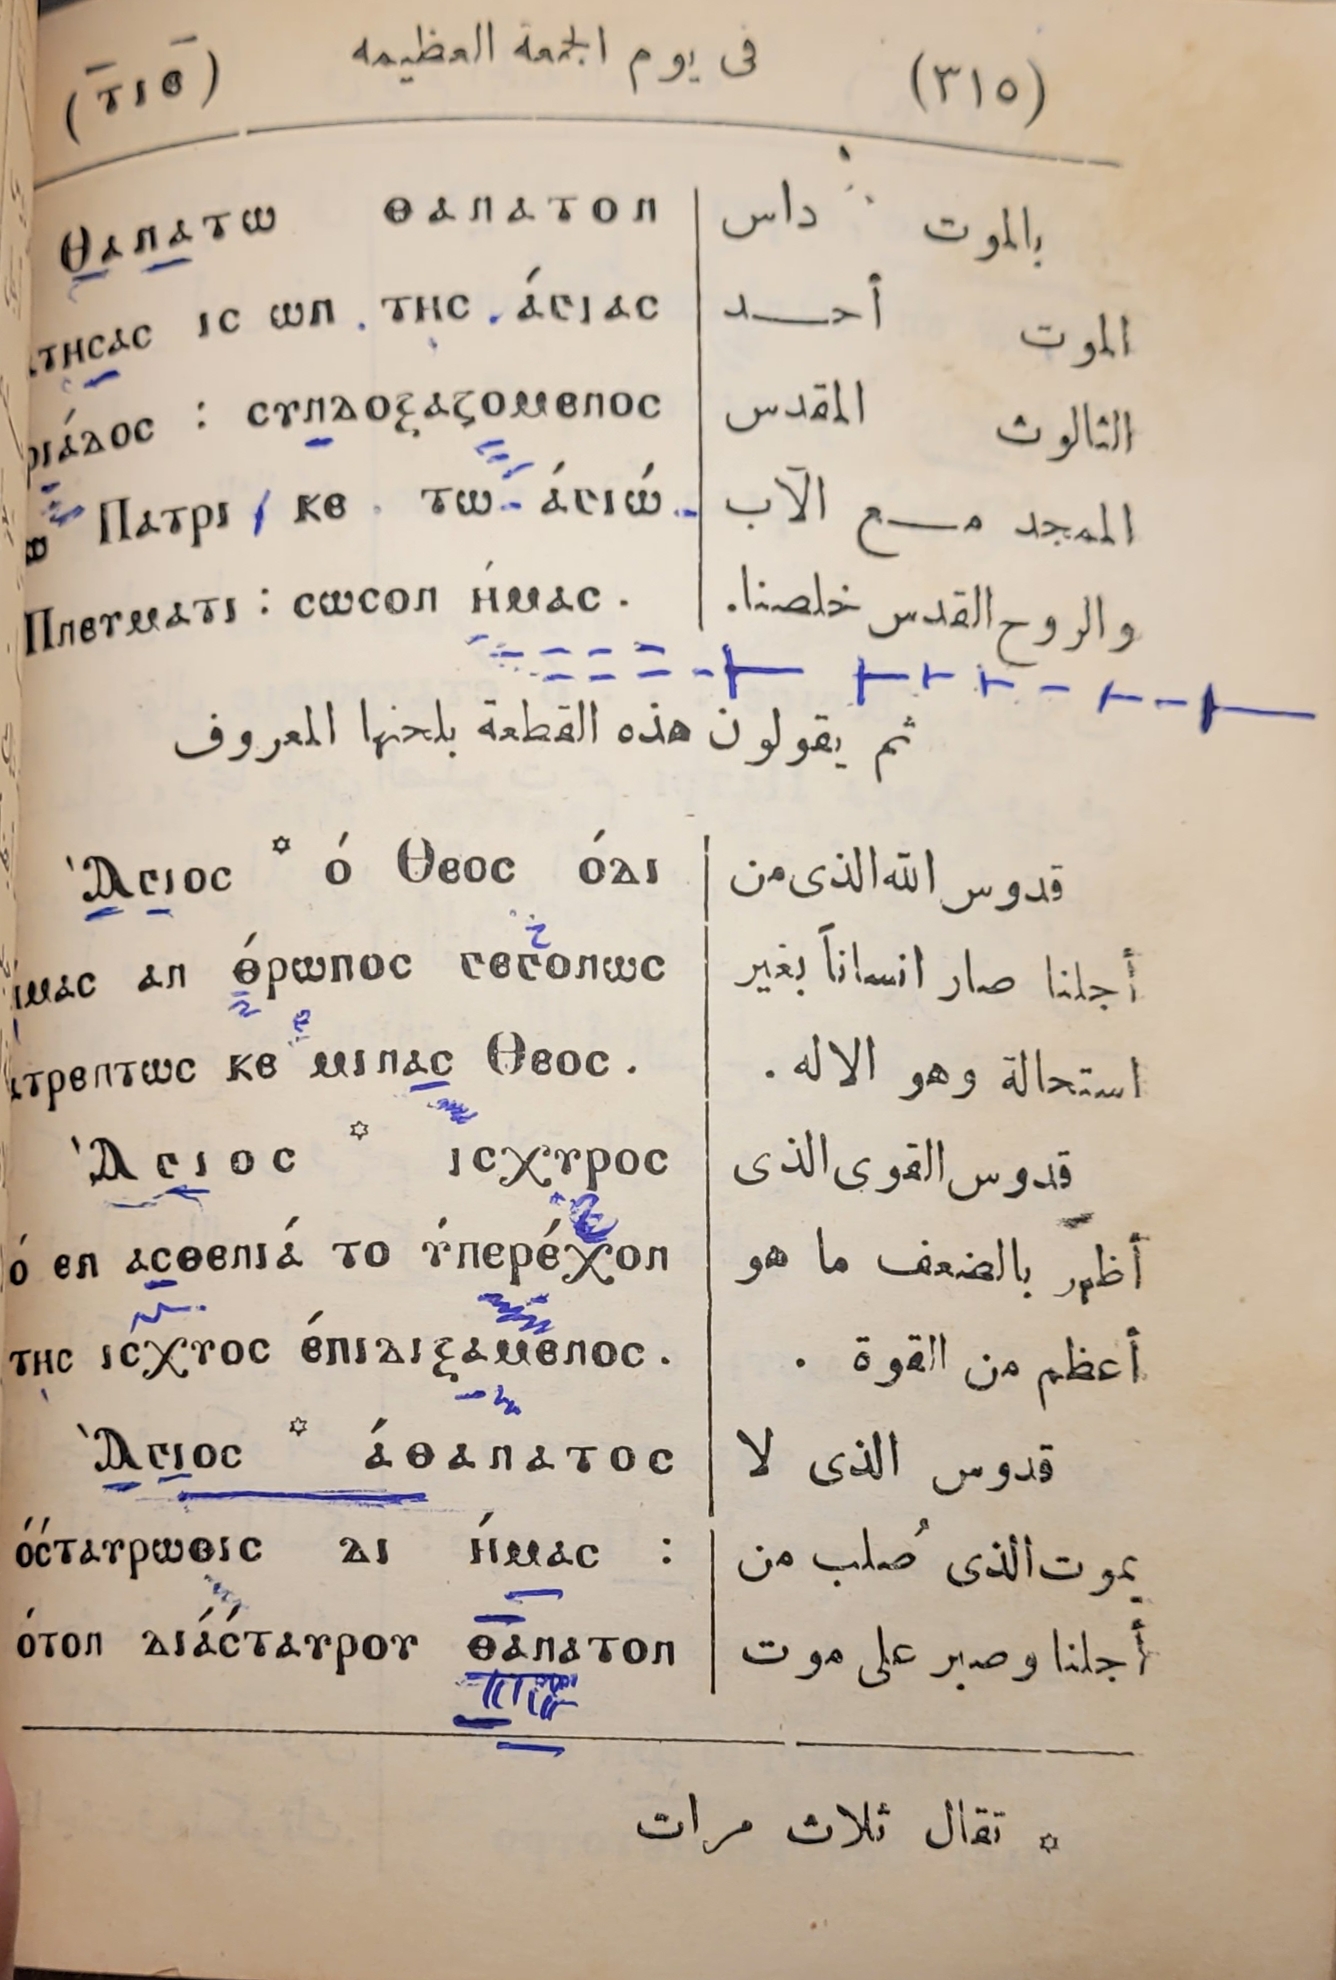 (ⲧⲓⲉ) فى يوم الجمعة العظيمه (٣١٥)
Ⲑⲁⲛⲁⲧⲱ ⲑⲁⲛⲁⲧⲟⲛ
ⲓⲥ ⲱⲛ ⲧⲏⲥ ⲁ́ⲅⲓⲁⲥ
: ⲥⲩⲛⲇⲟⲝⲁⲍⲟⲙⲉⲛⲟⲥ
Ⲡⲁⲧⲣⲓ ⲕⲉ ⲧⲱ ⲁ́ⲅⲓⲱ́
Ⲡⲛⲉⲩⲙⲁⲧⲓ : ⲥⲱⲥⲟⲛ ⲏ́ⲙⲁⲥ .
بالموت داس
الموت أحـــد
الثالوث المقدس
الممجد مـــع الآب
والروح القدس خلصنا.
ثم يقولون هذه القطعة بلحنها المعروف
Ⲁ̀ⲅⲓⲟⲥ ✡ ⲟ́ Ⲑⲉⲟⲥ ⲟ́ⲇⲓ
ⲁⲛ ⲑ́ⲣⲱⲡⲟⲥ ⲅⲉⲅⲟⲛⲱⲥ
ⲕⲉ ⲙⲓⲛⲁⲥ Ⲑⲉⲟⲥ .
Ⲁ̀ⲅⲓⲟⲥ ✡ ⲓⲥⲭⲩⲣⲟⲥ
ⲟ́ ⲉⲛ ⲁⲥⲑⲉⲛⲓⲁ́ ⲧⲟ ⲩ́ⲡⲉⲣⲉ́ⲭⲟⲛ
ⲧⲏⲥ ⲓⲥ́ⲭⲩⲟⲥ ⲉ́ⲡⲓⲇⲓⲝⲁⲙⲉⲛⲟⲥ .
Ⲁ̀ⲅⲓⲟⲥ ✡ ⲁ́ⲑⲁⲛⲁⲧⲟⲥ
ⲟ́ⲥ́ⲧⲁⲩⲣⲱⲑⲓⲥ ⲇⲓ ⲏ́ⲙⲁⲥ :
ⲟ́ⲧⲟⲛ ⲇⲓⲁ́ⲥ́ⲧⲁⲩⲣⲟⲩ ⲑⲁⲛⲁⲧⲟⲛ
قدوس الله الذى من
أجلنا صار انساناً بغير
استحالة وهو الاله .
قدوس القوى الذى
أظهر بالضعف ما هو
أعظم من القوة .
قدوس الذى لا
يموت الذى صُلب من
أجلنا وصبر على موت
✡ تقال ثلاث مرات